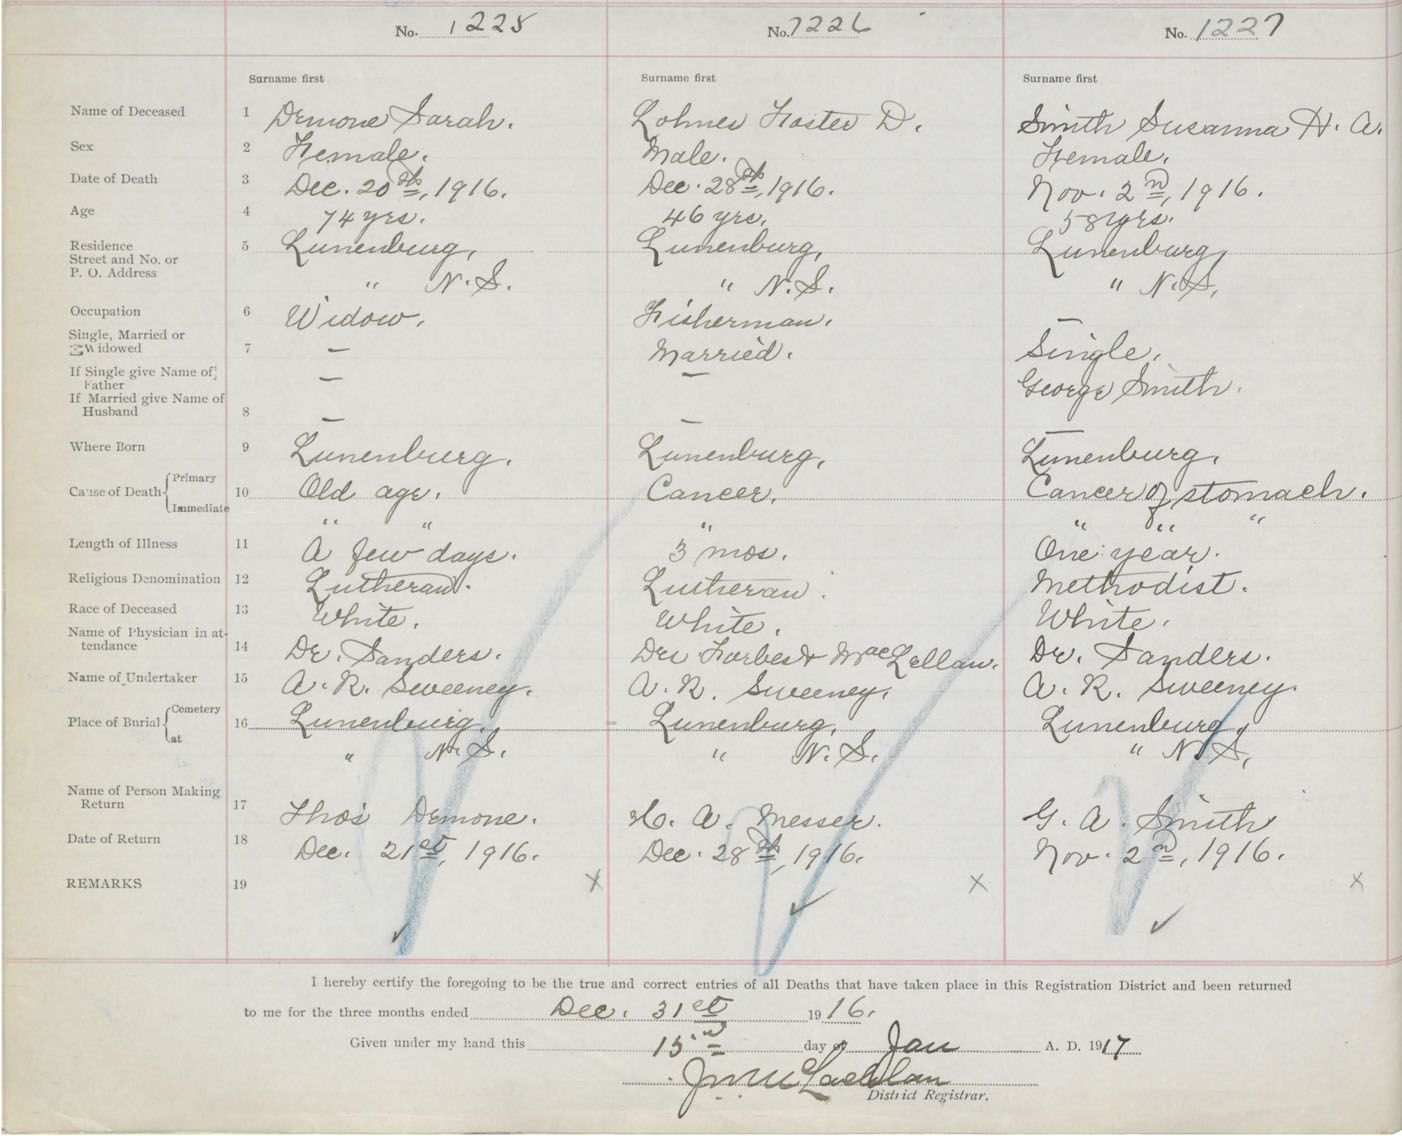 No. 1225 No. 1226 No. 1227
Surname first Surname first Surname first
Name of Deceased 1 Demone Sarah. Lohnes Foster D. Smith Susanna H. A.
Sex 2 Female. Male. Female.
Date of Death 3 Dec. 20th, 1916. Dec. 28th, 1916. Nov. 2nd, 1916.
Age 4 74 yrs. 46 yrs. 58 yrs.
Residence 5 Lunenburg, Lunenburg, Lunenburg,
Street and No. or
P. O. Address " N.S. " N.S. " N.S,
Occupation 6 Widow. Fisherman. —
Single, Married or
Widowed 7 — Married. Single.
If Single give Name of
Father — — George Smith.
If Married give Name of
Husband 8 — — —
Where Born 9 Lunenburg. Lunenburg. Lunenburg.
Cause of Death { Primary 10 Old age. Cancer. Cancer of stomach.
Immediate " " " " " "
Length of Illness 11 A few days. 3 mos. One year.
Religious Denomination 12 Lutheran. Lutheran. Methodist.
Race of Deceased 13 White. White. White.
Name of Physician in at-
tendance 14 Dr. Sanders. Drs Forbes & MacLellan. Dr. Sanders.
Name of Undertaker 15 A. R. Sweeney. A. R. Sweeney. A. R. Sweeney.
Place of Burial { Cemetery 16 Lunenburg. Lunenburg, Lunenburg,
at " N.S. " N.S. " N.S,
Name of Person Making
Return 17 Thos Demone. H. A. Messer. G. A. Smith
Date of Return 18 Dec. 21st, 1916. Dec. 28th, 1916. Nov. 2nd, 1916.
REMARKS 19 x x x
I hereby certify the foregoing to be the true and correct entries of all Deaths that have taken place in this Registration District and been returned
to me for the three months ended Dec. 31st 1916.
Given under my hand this 15th day of Jan A. D. 1917
McLachlan
District Registrar.